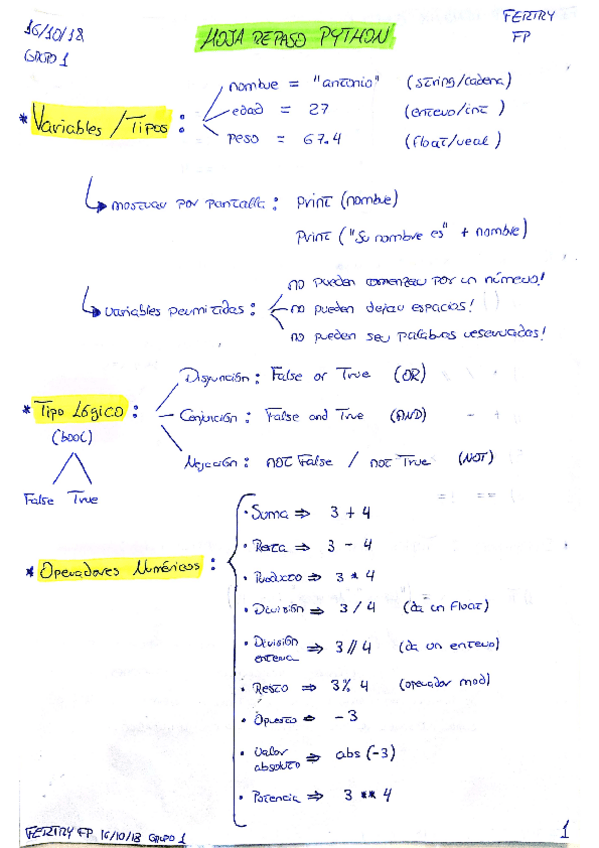 16/10/18
GRUPO 1
HOJA REPASO PYTHON
FERTRY
FP
* Variables / Tipos :
nombre = "antonio" (string/cadena)
edad = 27 (entero/int)
peso = 67.4 (float/real)
mostrar por pantalla : Print (nombre)
Print ("Su nombre es" + nombre)
variables permitidas :
no pueden comenzar por un número!
no pueden dejar espacios!
no pueden ser palabras reservadas!
* Tipo Lógico :
(bool)
False True
Disyunción : False or True (OR)
Conjunción : False and True (AND)
Nejación : not False / not True (NOT)
* Operadores Numéricos :
• Suma ⇒ 3 + 4
• Resta ⇒ 3 - 4
• Producto ⇒ 3 * 4
• División ⇒ 3 / 4 (da un Float)
• División entera ⇒ 3 // 4 (da un entero)
• Resto ⇒ 3 % 4 (operador mod)
• Opuesto ⇒ -3
• Valor absoluto ⇒ abs (-3)
• Potencia ⇒ 3 ** 4
FERTRY FP 16/10/18 GRUPO 1
1